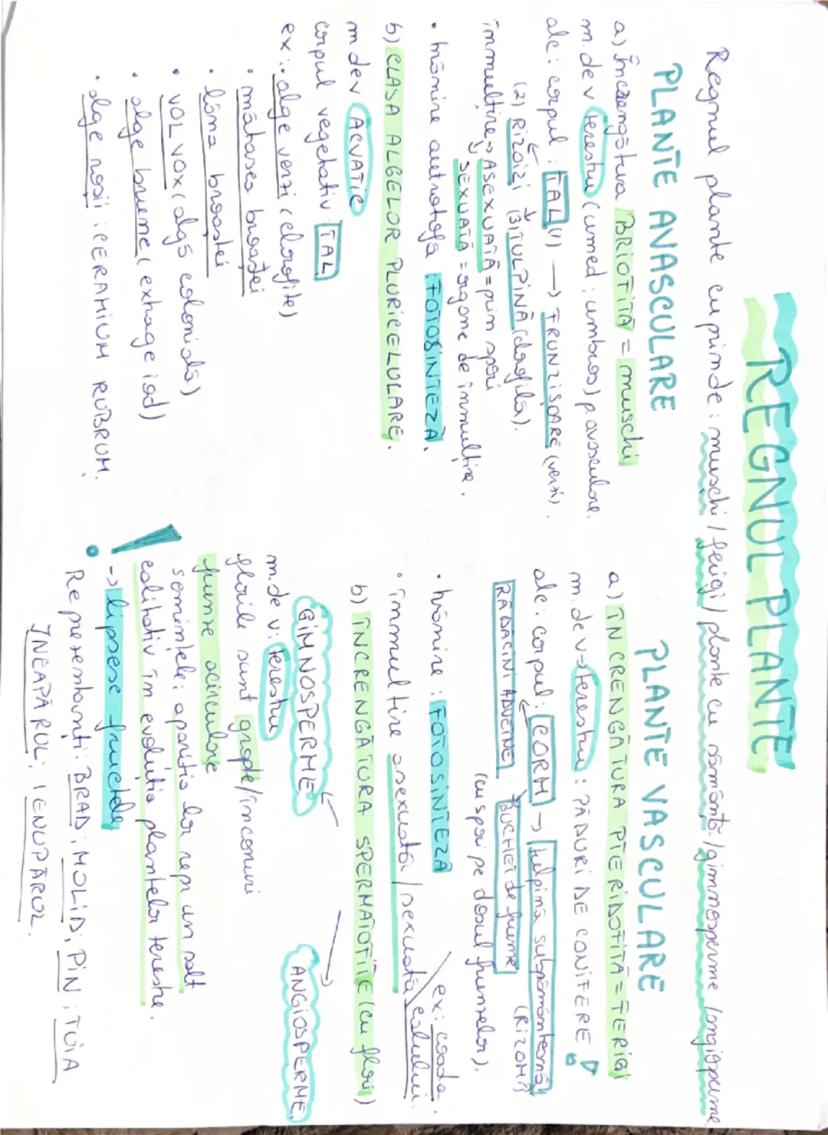 REGNUL PLANTE
Regnul plante cuprinde: mușchi / ferigi / plante cu sămânță / gimnosperme / angiosperme
PLANTE AVASCULARE
a) Încrengătura BRIOFITA = mușchi
m. dev terestru (umed; umbros) pavasculare.
alc: corpul: TAL (1) → FRUNZIȘOARE (verzi).
(2) RIZOIZI (3) TULPINĂ (clorofilă).
înmulțire → ASEXUATĂ = prin spori
SEXUATĂ = organe de înmulțire.
• hrănire autotrofă FOTOSINTEZĂ.
b) CLASA ALGELOR PLURICELULARE.
m. dev ACVATIC
corpul vegetativ TAL
ex: • alge verzi (clorofite)
• mătasea broaștei
• lâna broaștei
• VOLVOX (algă colonială)
• alge brune (extrage iod)
• alge roșii: CERAMIUM RUBRUM.
PLANTE VASCULARE
a) ÎNCRENGĂTURA PTERIDOFITĂ = FERIGI
m. dev → terestru: PĂDURI DE CONIFERE !
alc: corpul: CORM → tulpină subpământeană
RĂDĂCINI ADVENTIVE BUCHET de frunze (RIZOM)
(cu spori pe dosul frunzelor).
• hrănire: FOTOSINTEZĂ
• înmulțire asexuată / sexuată
ex: coada calului.
b) ÎNCRENGĂTURA SPERMATOFITE (cu flori)
GIMNOSPERME
ANGIOSPERME.
m. de v: terestru
florile sunt grupate / în conuri
frunze aciculare
semințele: apariția lor repr un salt
calitativ în evoluția plantelor terestre.
! → lipsesc fructele
Reprezentanți: BRAD; MOLID; PIN; TUIA
INEAPĂRUL; IENUPĂRUL.